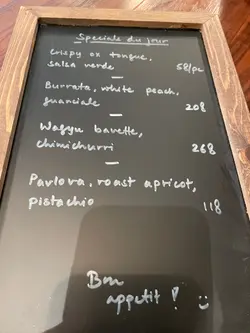 Speciale du jour
crispy ox tongue,
salsa verde 58/pc
Burrata, white peach,
guanciale 208
Wagyu bavette,
chimichurri 268
Pavlova, roast apricot,
pistachio 118
Bon
appetit! :)